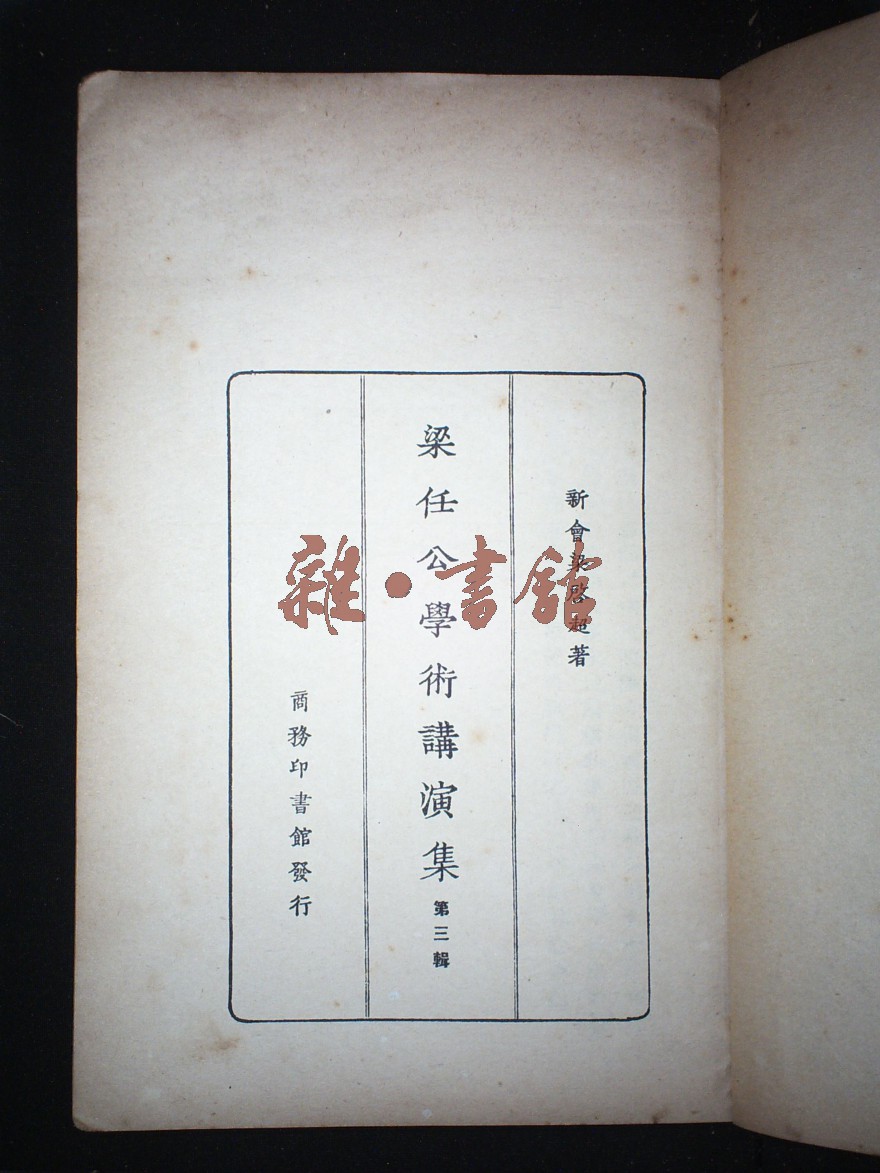 新會梁啓超著
梁任公學術講演集 第三輯
商務印書館發行
雜·書館